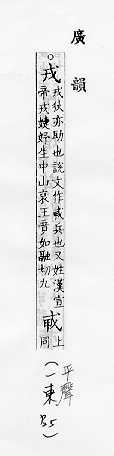 廣韻
○戎
戎狄亦助也說文作𢦦兵也又姓漢宣
帝戎婕妤生中山哀王竟如融切九
𢦦
上
同
(平聲
一東
)